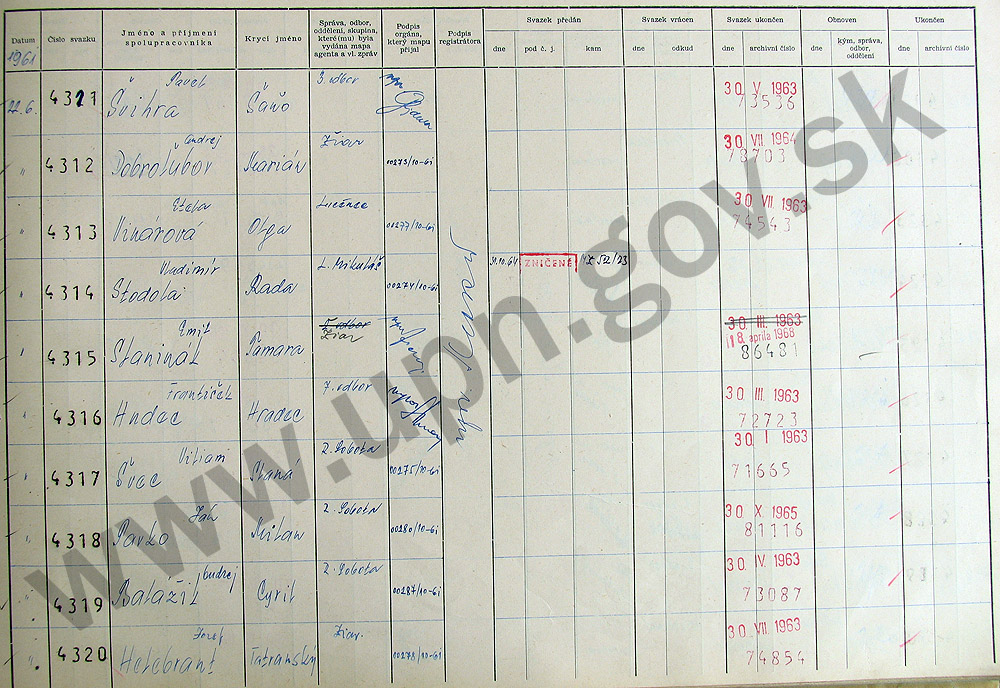 Datum
Číslo svazku
Jméno a příjmení
spolupracovníka
Krycí jméno
Správa, odbor,
oddělení, skupina,
které(mu) byla
vydána mapa
agenta a vl. zpráv
Podpis
orgána,
který mapu
přijal
Podpis
registrátora
Svazek předán
dne
pod č. j.
kam
Svazek vrácen
dne
odkud
Svazek ukončen
dne
archivní číslo
Obnoven
dne
kým, správa,
odbor,
oddělení
Ukončen
dne
archivní číslo
1961
22.6.
4321
Pavel
Švihra
Šaňo
3. odbor
30 V 1963
73536
4312
Andrej
Dobroľubov
Marián
Žiar
00273/10-61
30 VII 1964
78703
4313
Etela
Vinárová
Oľga
Lučenec
00277/10-61
30 VII 1963
74543
4314
Vladimír
Stodola
Rada
L. Mikuláš
00274/10-61
31.10.64
ZNIČENÉ
4315
Emil
Staninák
Tamara
odbor
Žiar
30 III. 1963
8. apríla 1968
86481
4316
František
Hudec
Hradec
7. odbor
30 III. 1963
72723
4317
Viliam
Švec
Slaná
2. Sobota
00275/10-61
30 I 1963
71665
4318
Ján
Pavko
Milan
2. Sobota
00280/10-61
30 X 1965
81116
4319
Ondrej
Balážik
Cyril
2. Sobota
00287/10-61
30 IV. 1963
73087
4320
Jozef
Helebrant
Tatranský
Žiar.
00278/10-61
30 VII. 1963
74854
www.upn.gov.sk